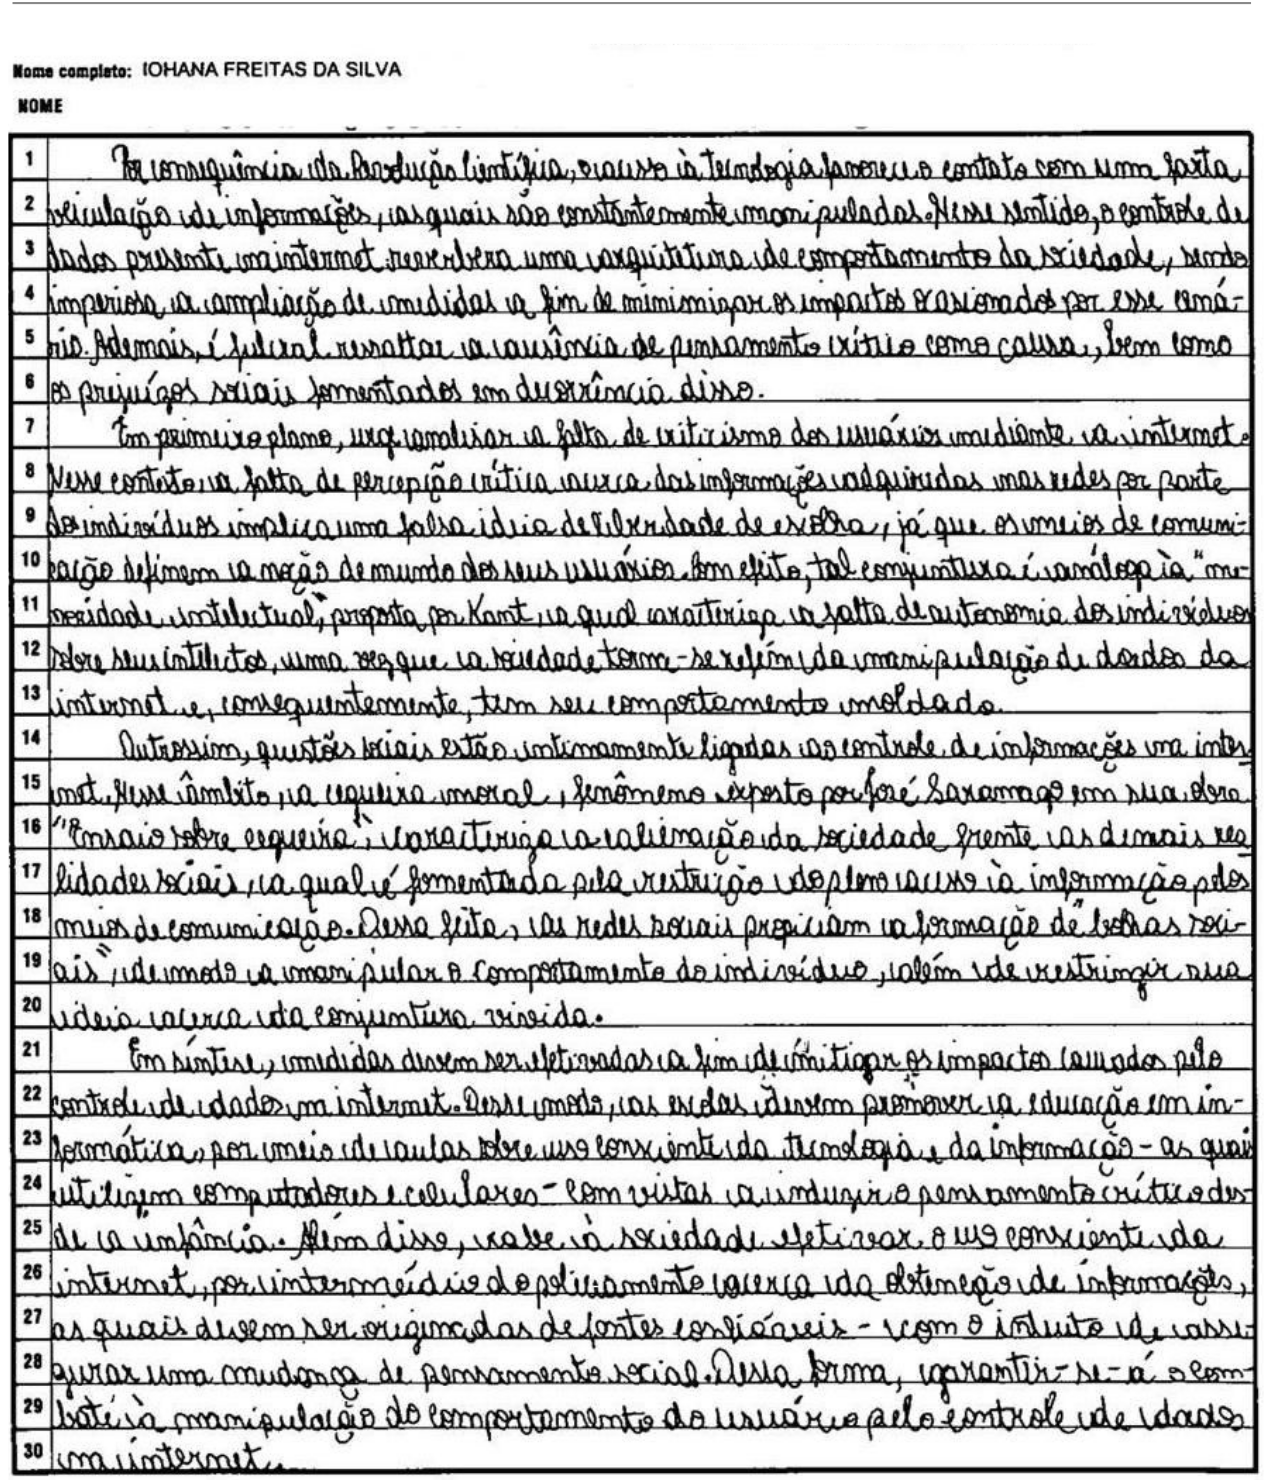 Nome completo: IOHANA FREITAS DA SILVA
NOME
1 Por consequência da Revolução Científica, o acesso à tecnologia favoreceu o contato com uma farta
2 veiculação de informações, as quais são constantemente manipuladas. Nesse sentido, o controle de
3 dados presente na internet reverbera uma arquitetura de comportamento da sociedade, sendo
4 imperiosa a ampliação de medidas a fim de minimizar os impactos ocasionados por esse cená-
5 rio. Ademais, é fulcral ressaltar a ausência de pensamento crítico como causa, bem como
6 os prejuízos sociais fomentados em decorrência disso.
7 Em primeiro plano, urge analisar a falta de criticismo dos usuários mediante a internet.
8 Nesse contexto, a falta de percepção crítica acerca das informações adquiridas nas redes por parte
9 dos indivíduos implica uma falsa ideia de liberdade de escolha, já que os meios de comuni-
10 cação definem a noção de mundo dos seus usuários. Com efeito, tal conjuntura é análoga à "me-
11 noridade intelectual", proposta por Kant, a qual caracteriza a falta de autonomia dos indivíduos
12 sobre seus intelectos, uma vez que a sociedade torna-se refém da manipulação de dados da
13 internet e, consequentemente, tem seu comportamento moldado.
14 Outrossim, questões sociais estão intimamente ligadas ao controle de informações na inter-
15 net. Nesse âmbito, a cegueira moral, fenômeno exposto por José Saramago em sua obra
16 "Ensaio sobre cegueira", caracteriza a alienação da sociedade frente as demais rea
17 lidades sociais, a qual é fomentada pela restrição do pleno acesso à informação pelos
18 meios de comunicação. Dessa feita, as redes sociais propiciam a formação de "bolhas soci-
19 ais", de modo a manipular o comportamento do indivíduo, além de restringir sua
20 ideia acerca da conjuntura vivida.
21 Em síntese, medidas devem ser efetivadas a fim de mitigar os impactos causados pelo
22 controle de dados na internet. Desse modo, as escolas devem promover a educação em in-
23 formática, por meio de aulas sobre uso consciente da tecnologia e da informação - as quais
24 utilizem computadores e celulares - com vistas a induzir o pensamento crítico des-
25 de a infância. Além disso, cabe à sociedade efetivar o uso consciente da
26 internet, por intermédio do policiamento acerca da obtenção de informações,
27 as quais devem ser originadas de fontes confiáveis - com o intuito de asse-
28 gurar uma mudança de pensamento social. Dessa forma, garantir-se-á o com-
29 bate à manipulação do comportamento do usuário pelo controle de dados
30 na internet.